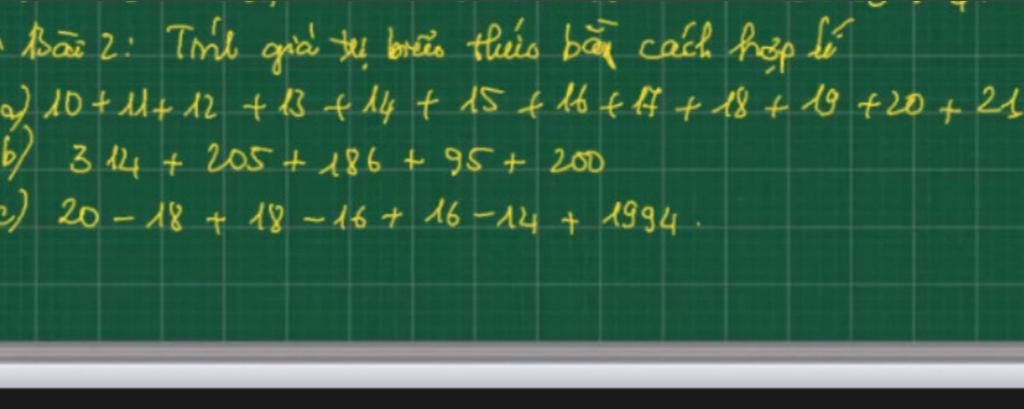 Bài 2: Tính giá trị biểu thức bằng cách hợp lí
a) 10 + 11 + 12 + 13 + 14 + 15 + 16 + 17 + 18 + 19 + 20 + 21
b) 314 + 205 + 186 + 95 + 200
c) 20 - 18 + 18 - 16 + 16 - 14 + 1994.